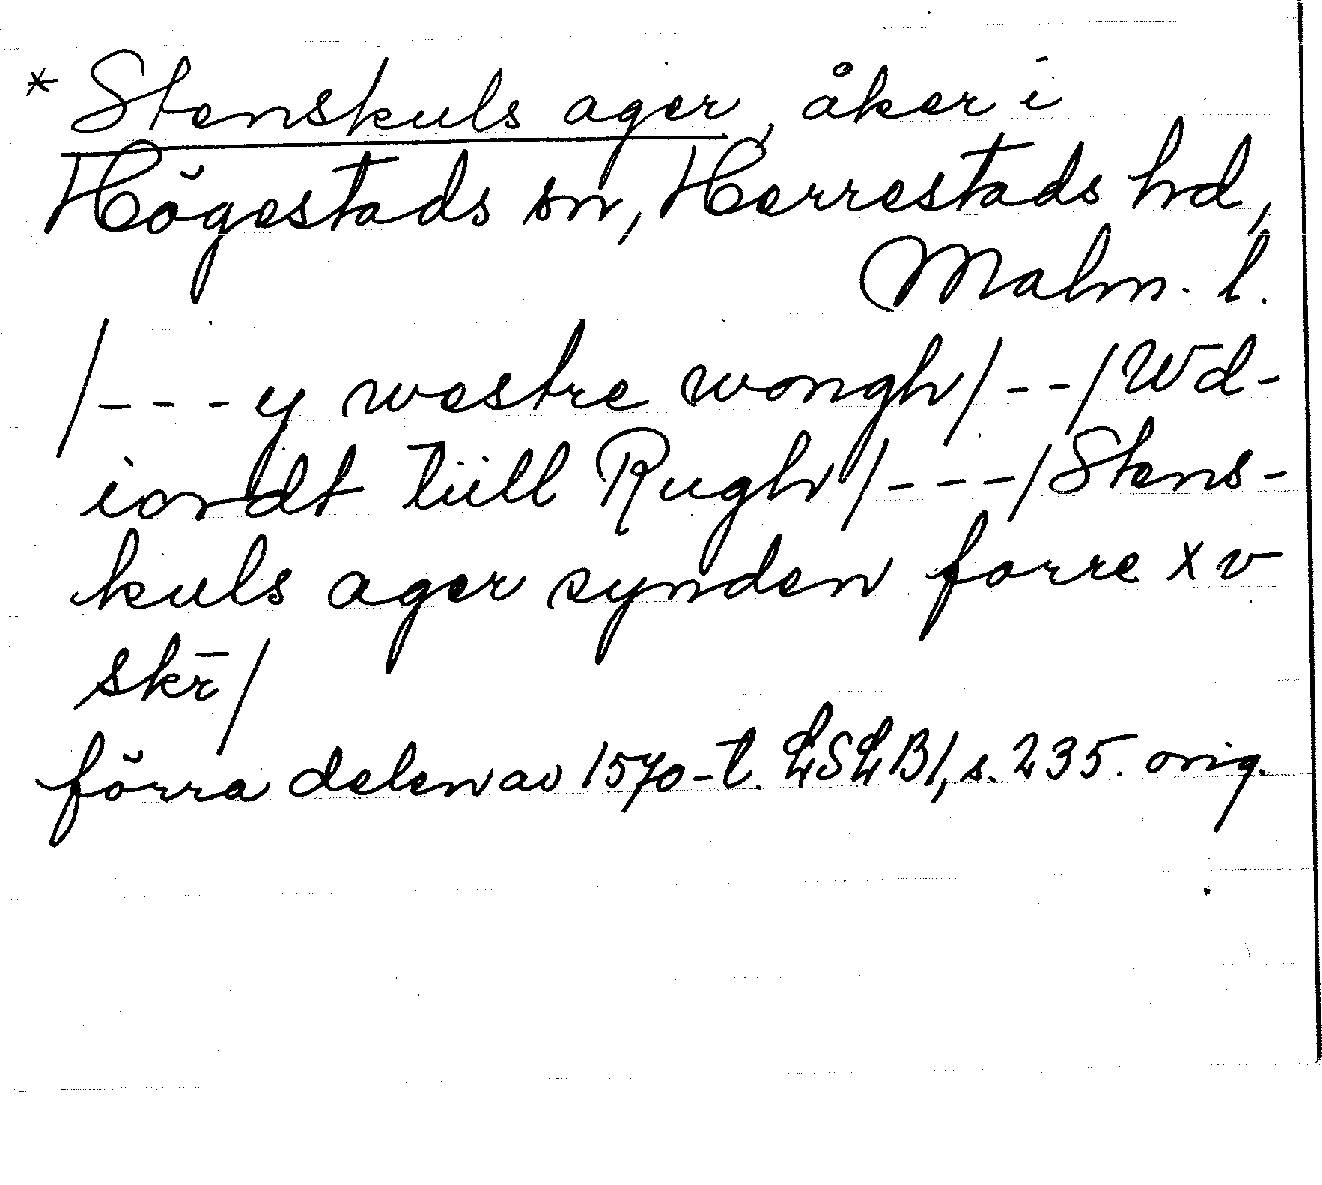 * Stenskuls ager, åker i
Högestads sn, Herrestads hd,
Malm. l.
/--- y westre wongh/--/Wd-
iordt tiill Rugh/---/Stens-
kuls ager synden forre xv
skr̄/
förra delen av 1570-t. LSLB1, s. 235. orig.